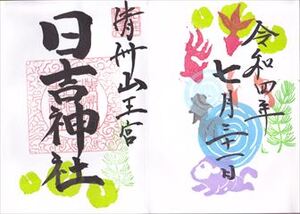 清洲山王宮
日吉神社
令和四年
七月三十一日